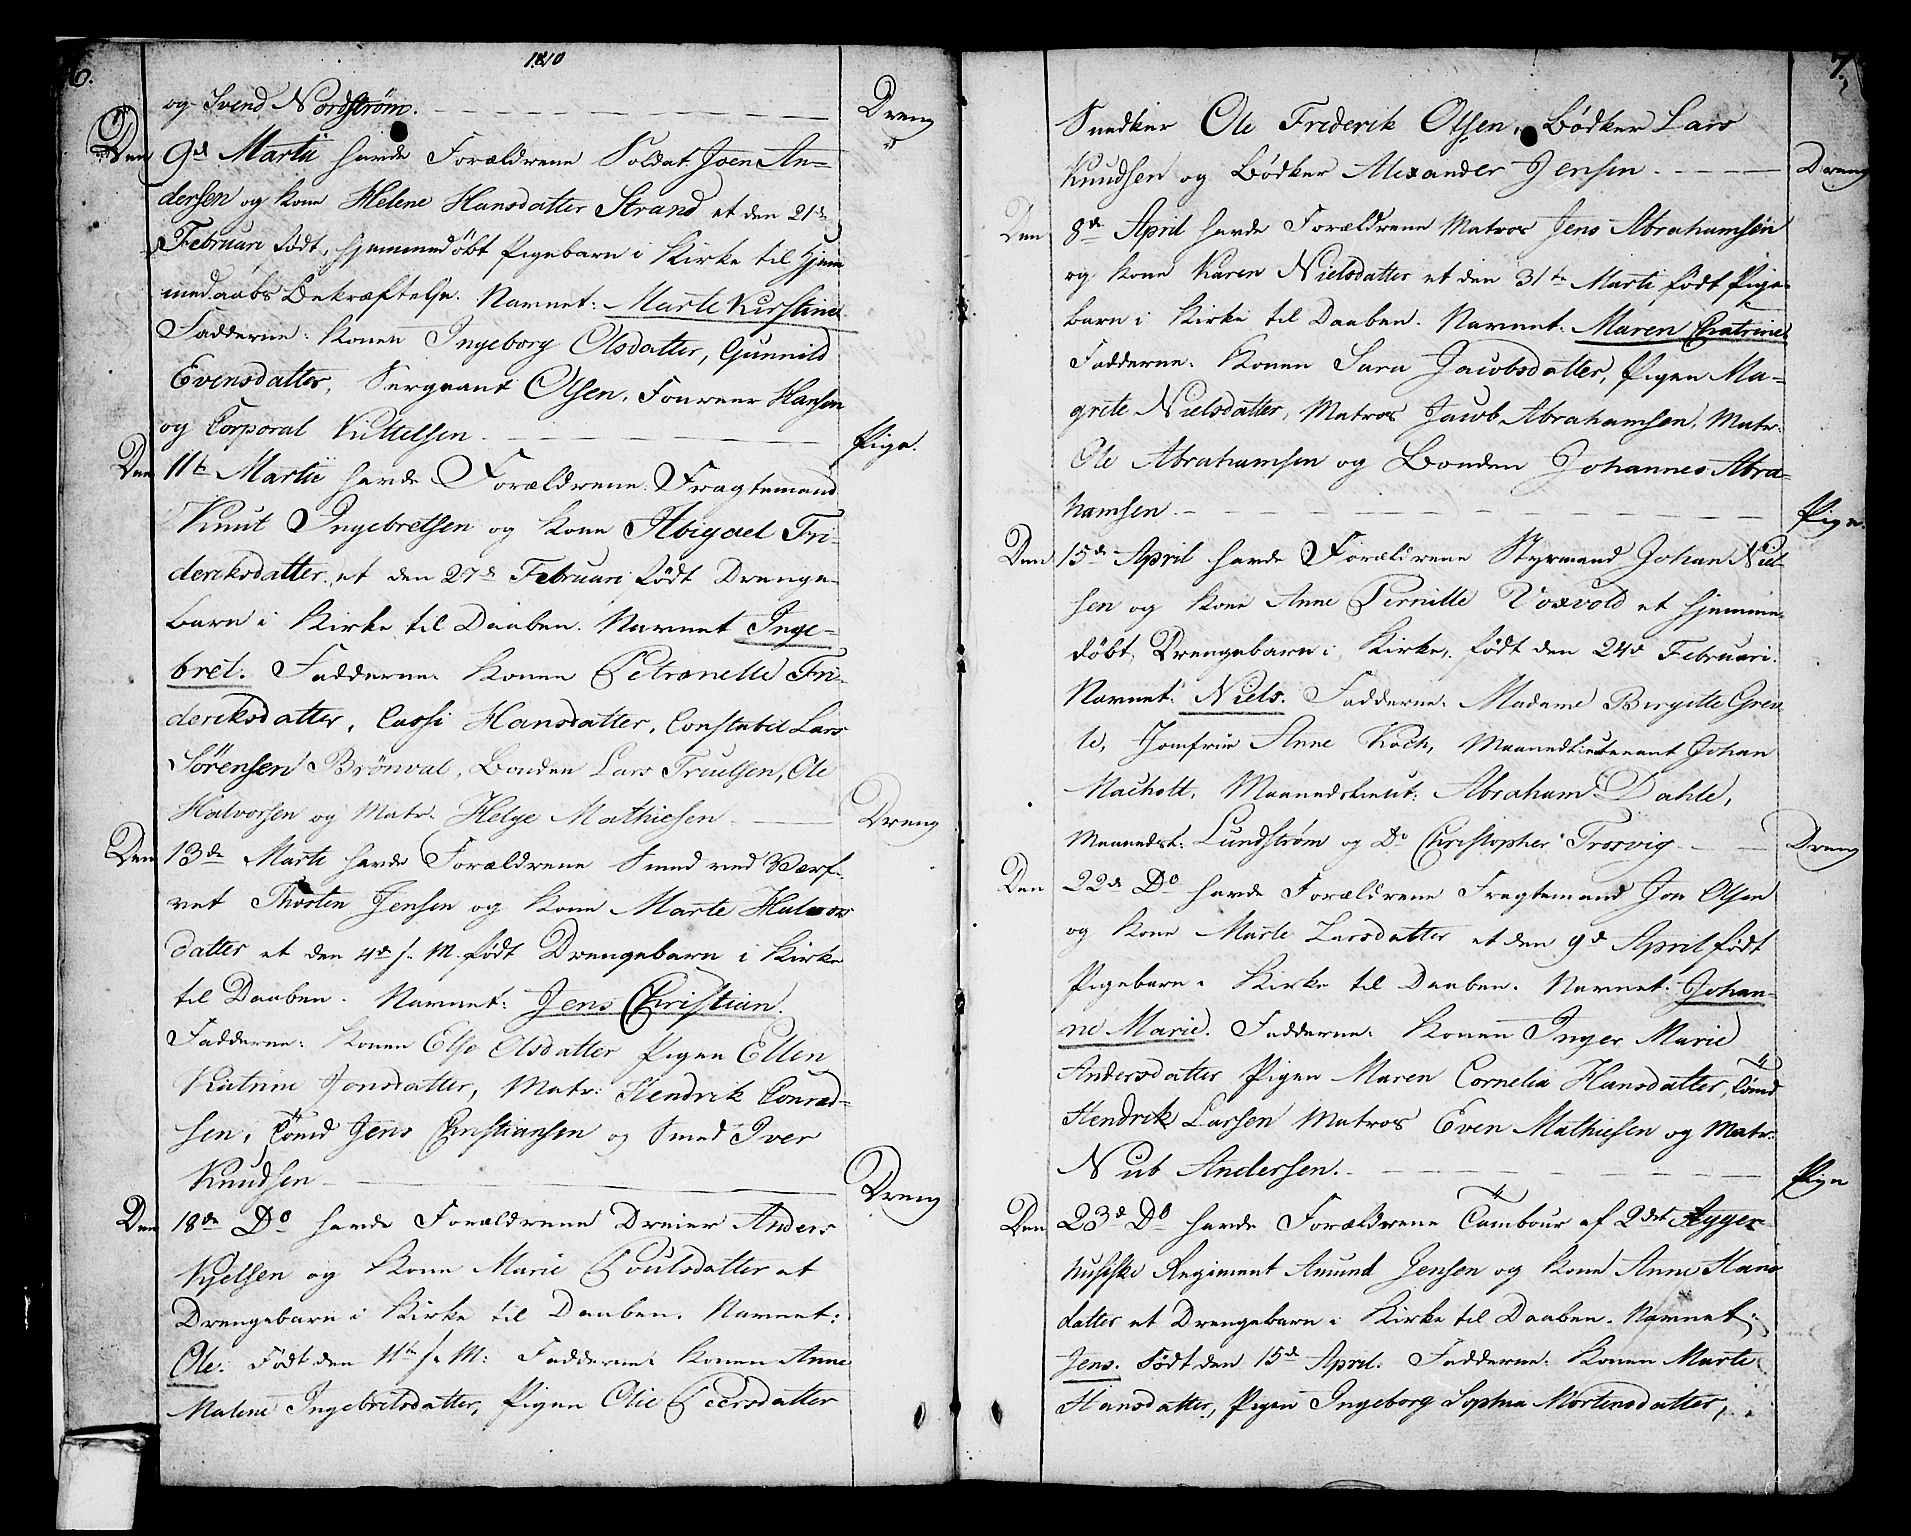 6.
1810
og Svend Nordstrøm. Dreng
Den 9de Martii havde Forældrene Soldat Joen An-
derssen og Kone Helene Hansdatter Strand et den 21de
Februari født, hjemmedøbt Pigebarn i Kirke til Hjem
medaabs Bekræftelse. Navnet: Marte Kirstine
Fadderne: Konen Ingeborg Olsdatter, Gunnild
Evensdatter, Sergeant Olsen, Foureer Hansen
og Corporal Kittelsen. Pige.
Den 11te Martii havde Forældrene Fragtemand
Knut Ingebretsen og Kone Abigael Fri-
deriksdatter et den 27de Februari født Drenge-
barn i Kirke til Daaben. Navnet Inge-
bret. Fadderne: Konen Petronelle Fri-
deriksdatter, Cassi Hansdatter, Constabel Lars
Sørensen Brönval, Bonden Lars Truelsen, Ole
Halvorsen og Matr. Helge Mathiesen Dreng
Den 13de Marti havde Forældrene Smed ved Værf-
vet Thorsten Jensen og Kone Marte Halvors
datter et den 4de s. M. født Drengebarn i Kirke
til Daaben. Navnet: Jens Christian.
Fadderne: Konen Else Olsdatter Pigen Ellen
Katrine Jonsdatter, Matr: Hendrik Conrad-
sen, Tömd Jens Christiansen og Smed Iver
Knudsen Dreng
Den 18de Do havde Forældrene Dreier Anders
Kjelsen og Kone Marie Poulsdatter et
Drengebarn i Kirke til Daaben. Navnet:
Ole. Født den 11te s. M: Fadderne: Konen Anne
Malene Ingebretsdatter, Pigen Olie Peersdatter
7.
Snedker Ole Frederik Olsen, Bødker Lars
Knudsen og Bødker Alexander Jensen. Dreng
Den 8de April havde Forældrene Matros Jens Abrahamsen
og Kone Karen Nielsdatter et den 31te Marti født Pige-
barn i Kirke til Daaben. Navnet: Maren Catrine
Fadderne: Konen Sara Jacobsdatter, Pigen Ma-
grete Nielsdatter, Matros Jacob Abrahamsen, Matr.
Ole Abrahamsen og Bonden Johannes Abra-
hamsen. Pige.
Den 15de April havde Forældrene Styrmand Johan Niel-
sen og Kone Anne Pernille Voxvold et hjemme-
døbt Drengebarn i Kirke, født den 24de Februari.
Navnet: Niels. Fadderne: Madame Birgitte
Jomfrue Anne Koch, Maanedslieutenant Johan
Nacholt, Maanedslieut: Abraham Dahle,
Maanedsl: Lundstrøm og Do Christopher Trosvig Dreng
Den 22de Do havde Forældrene Fragtemand Jon Olsen
og Kone Marte Larsdatter et den 9de April født
Pigebarn i Kirke til Daaben. Navnet: Johan-
ne Marie. Fadderne: Konen Inger Marie
Andersdatter Pigen Maren Cornelia Hansdatter, Tömd
Hendrik Larsen Matros Even Mathiesen og Matr:
Nub Andersen. Pige
Den 23de Do havde Forældrene Tambour af 2det Agger-
husiske Regiment Amund Jensen og Kone Anne Hans
datter et Drengebarn i Kirke til Daaben. Navnet:
Jens. Født den 15de April. Fadderne: Konen Marte
Hansdatter, Pigen Ingeborg Sophia Mortensdatter,